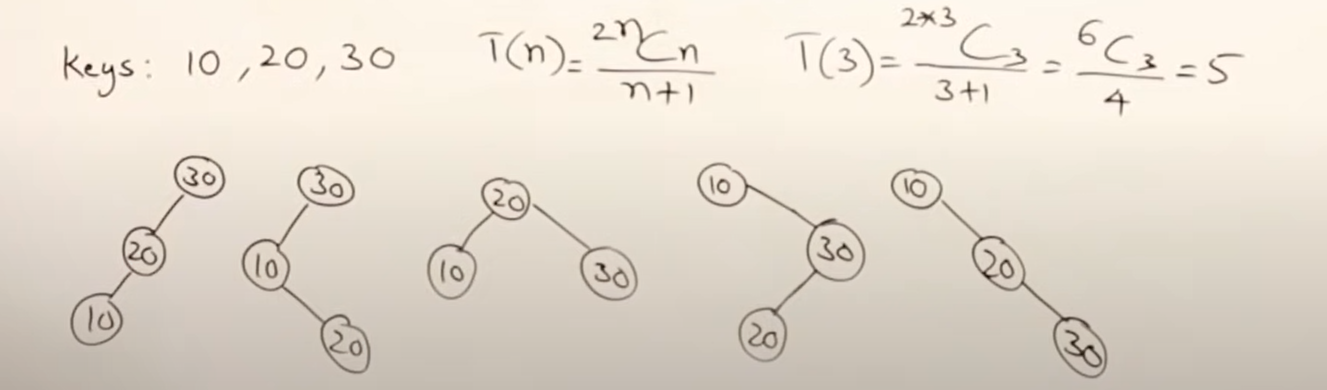 Keys: 10, 20, 30 T(n) = ²ⁿCₙ / n+1 T(3) = ²*³C₃ / 3+1 = ⁶C₃ / 4 = 5
30 30 20 10 10
20 10 10 30 30 20
10 20 20 30